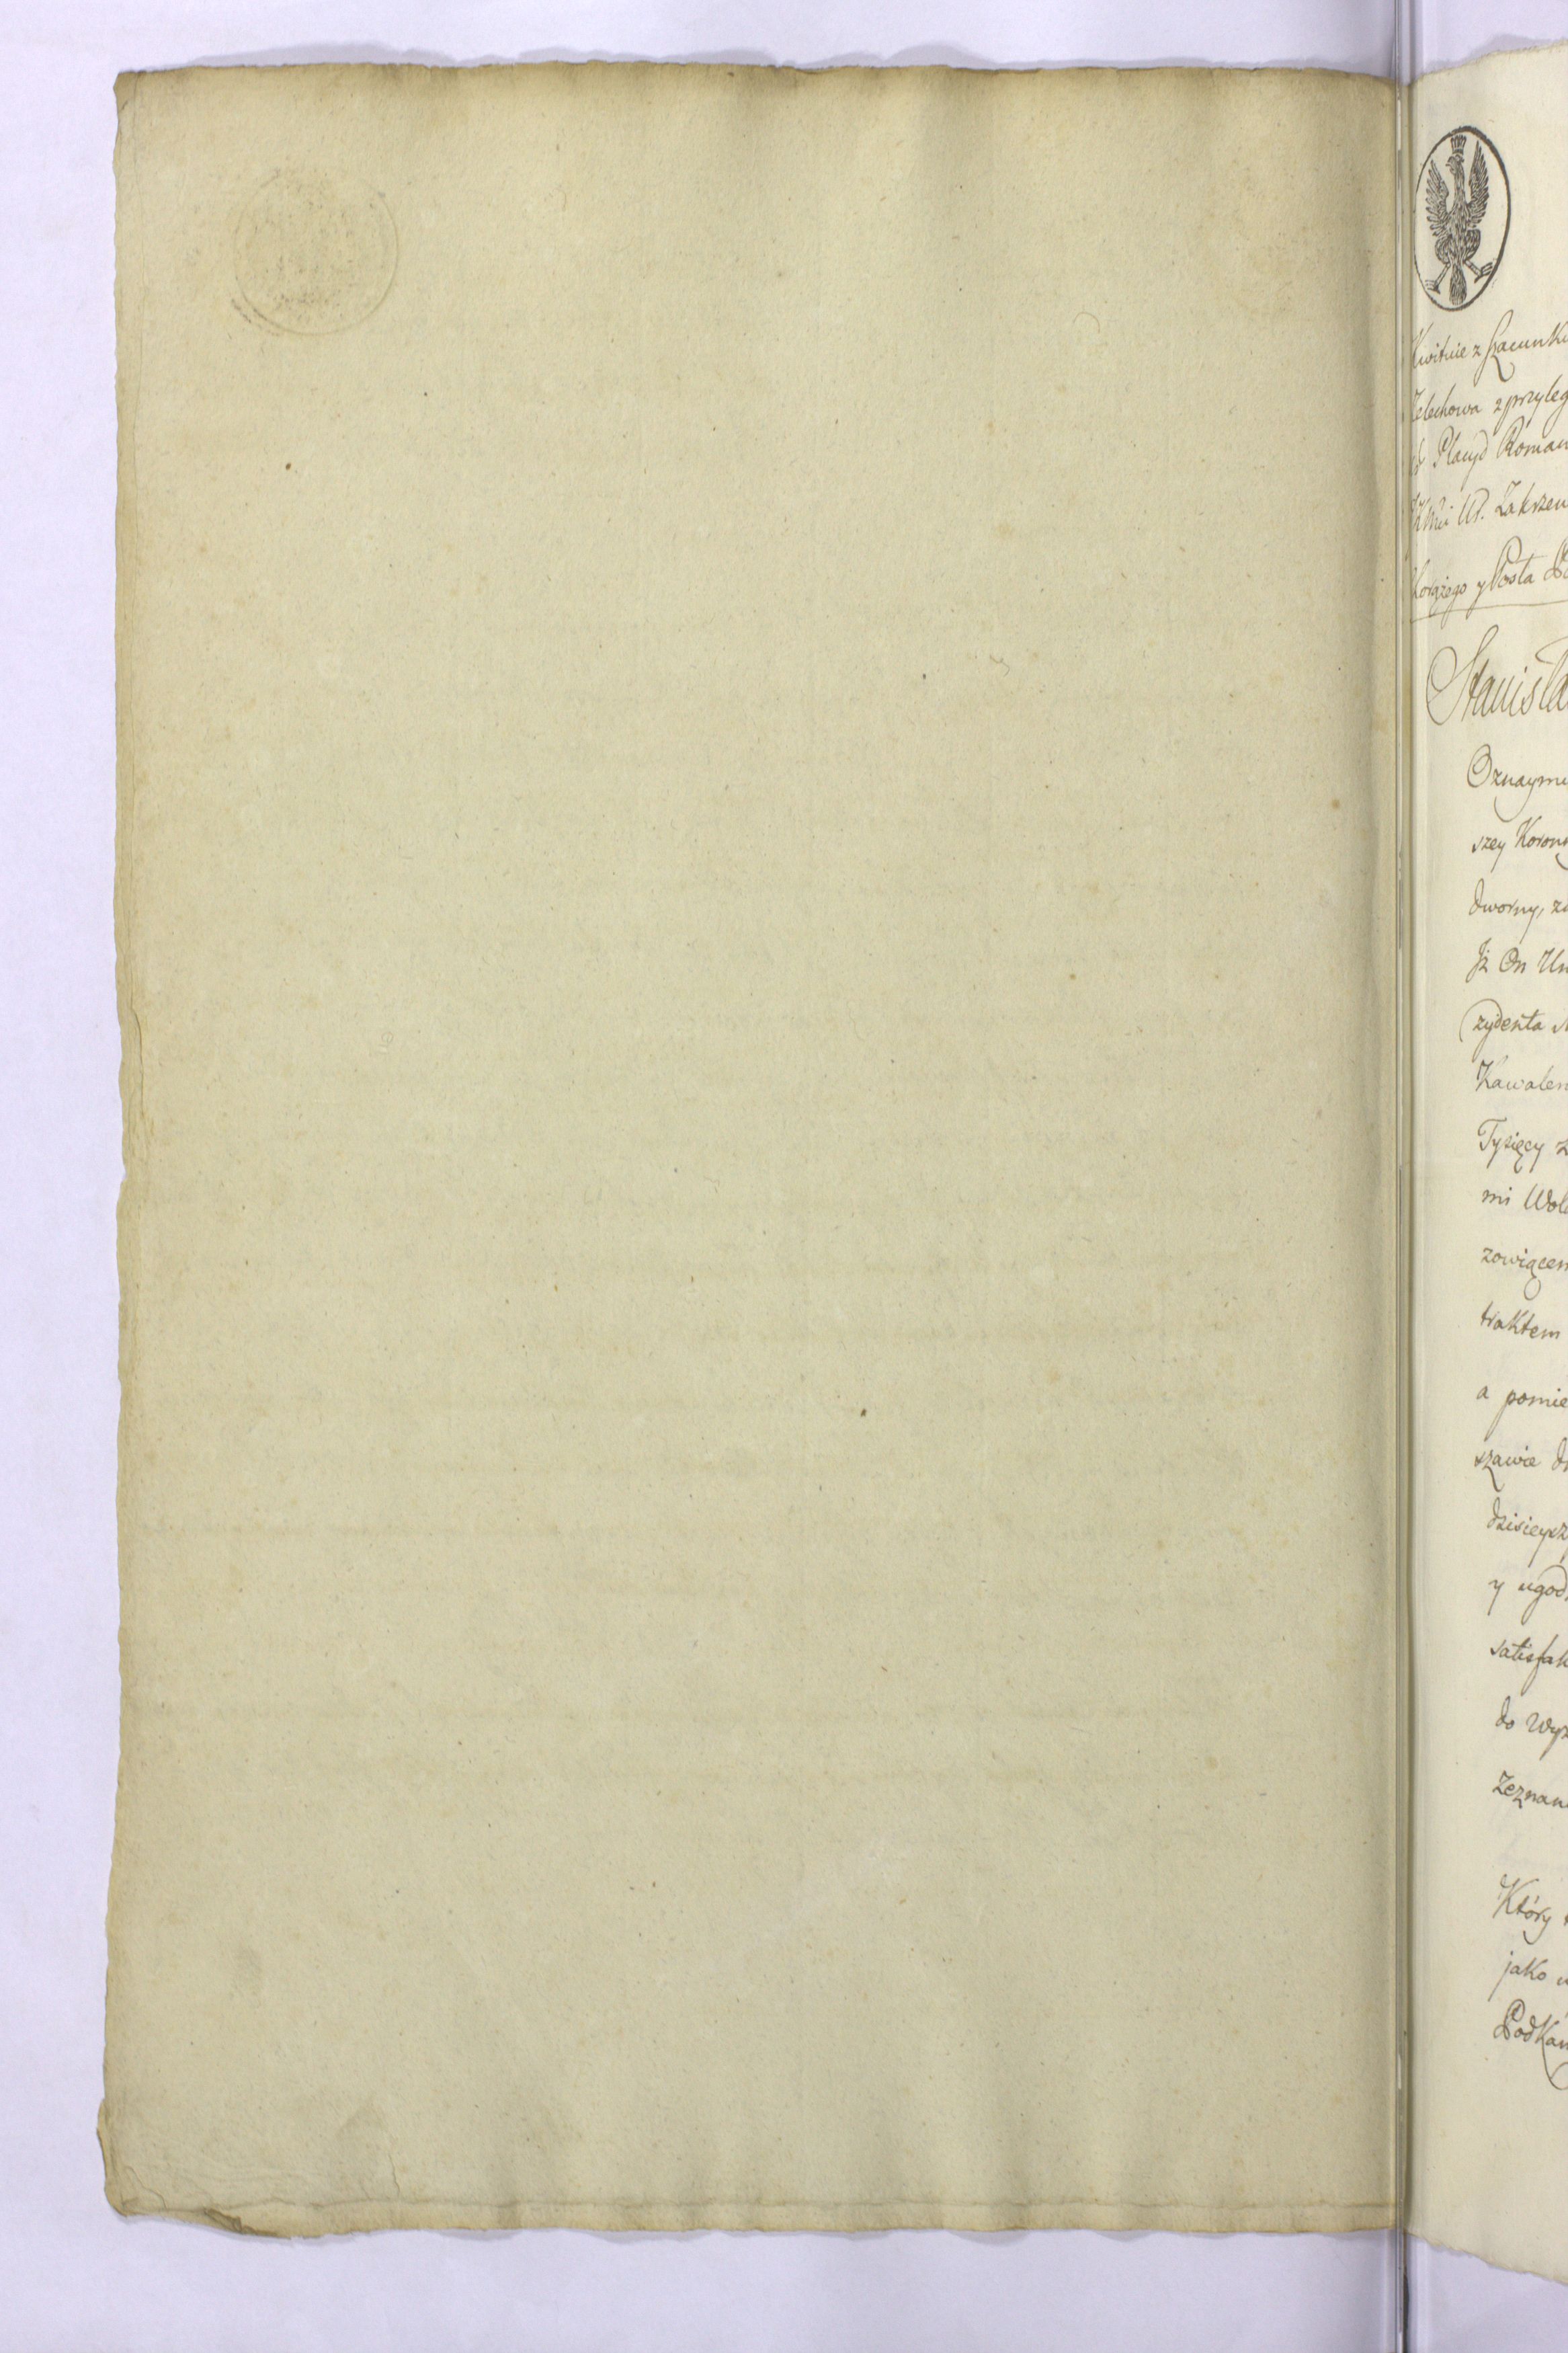 Kwituie z Szacunku
Zelechowa z przyleg
Placyd Roman
W. Zakrzew
Chorążego y Posła
Stanisła
Oznaymu
szey Korony
dworny, za
Jż On Ur
zydenta
Kawaler
Tysięcy z
mi Wol
zowiącem
traktem
a pomie
szawie d
dzisieysz
y ugod
satisfak
do wyż
Zeznan
Który
jako
PodKan